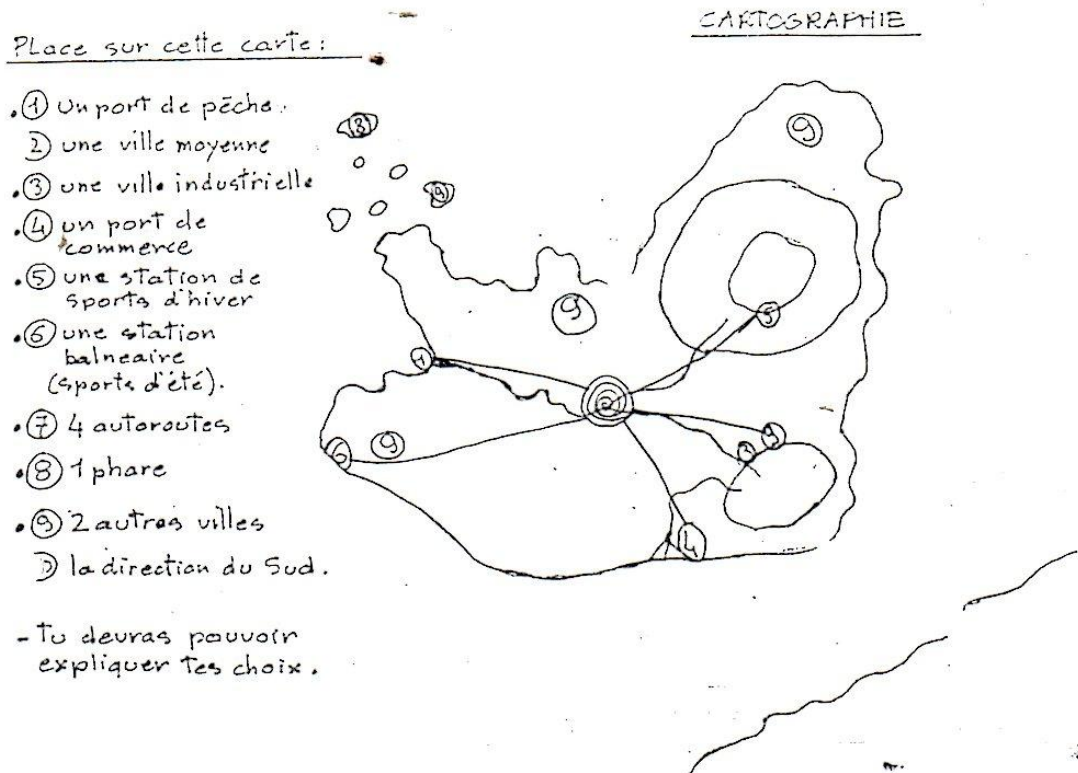 CARTOGRAPHIE
Place sur cette carte :
① un port de pêche.
② une ville moyenne
③ une ville industrielle
④ un port de
commerce
⑤ une station de
sports d'hiver
⑥ une station
balneaire
(sports d'été).
⑦ 4 autoroutes
⑧ 1 phare
⑨ 2 autres villes
la direction du Sud.
- Tu devras pouvoir
expliquer tes choix.
8
9
9
9
5
1
9
6
3
4